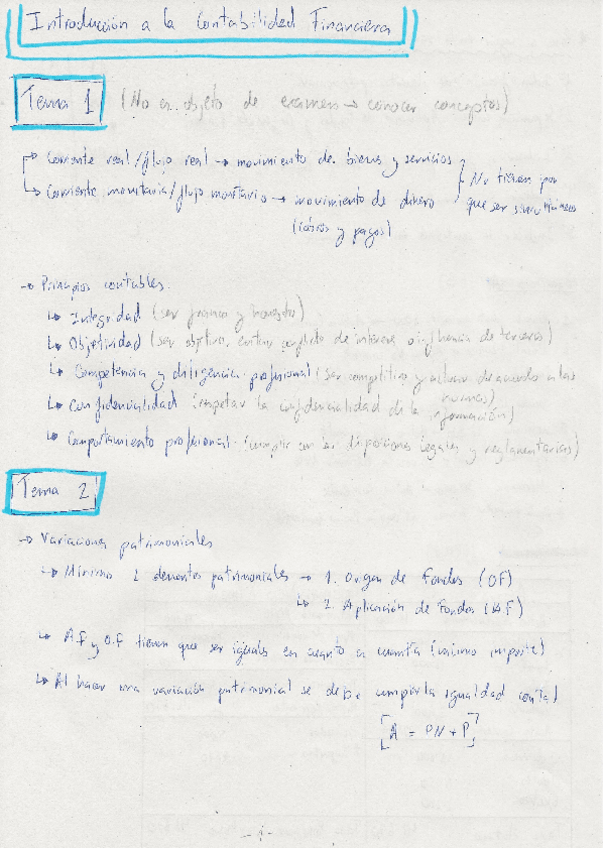 Introducción a la Contabilidad Financiera
Tema 1 (No es objeto de examen → conocer conceptos)
→ Corriente real/flujo real → movimiento de bienes y servicios
↳ Corriente monetaria/flujo monetario → movimiento de dinero
(cobros y pagos)
No tienen por
que ser simultáneos
→ Principios contables:
↳ Integridad (ser franco y honesto)
↳ Objetividad (ser objetivo, evitar conflicto de interese o influencia de terceros)
↳ Competencia y diligencia profesional (ser competitivo y actuar de acuerdo a las
normas)
↳ Confidencialidad (respetar la confidencialidad de la
información)
↳ Comportamiento profesional (cumplir con las disposiciones legales y reglamentarias)
Tema 2
→ Variaciones patrimoniales
↳ Mínimo 2 elementos patrimoniales → 1. Origen de Fondos (OF)
↳ 2. Aplicación de Fondos (AF)
↳ A.F y O.F tienen que ser iguales en cuanto a cuantía (mismo importe)
↳ Al hacer una variación patrimonial se debe cumplir la igualdad contal
[A = PN + P]
-1-